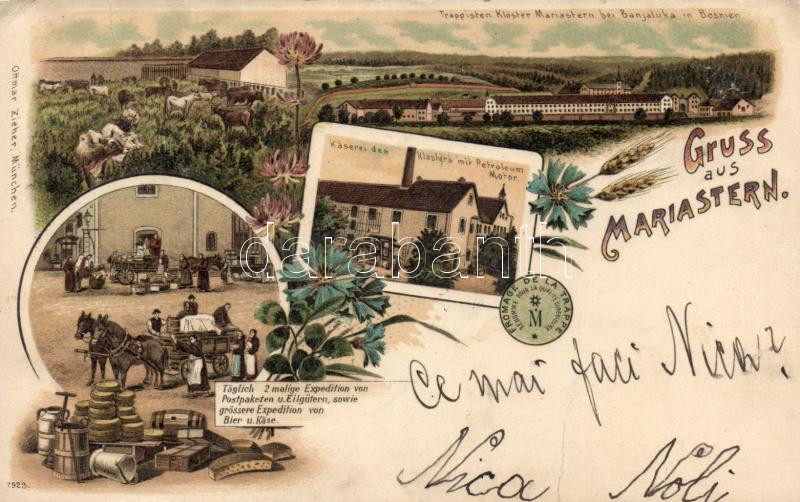 Trappisten Kloster Mariastern bei Banjaluka in Bosnien
Ottmar Zieher, München.
Käserei des
Klosters mit Petroleum
Motor.
GRUSS
aus
MARIASTERN.
darabanth
FROMAGE DE LA TRAPPE
M
Täglich 2 malige Expedition von
Postpaketen u. Eilgütern, sowie
grössere Expedition von
Bier u. Käse.
Ce mai faci Nick?
Nica Noli
7923.